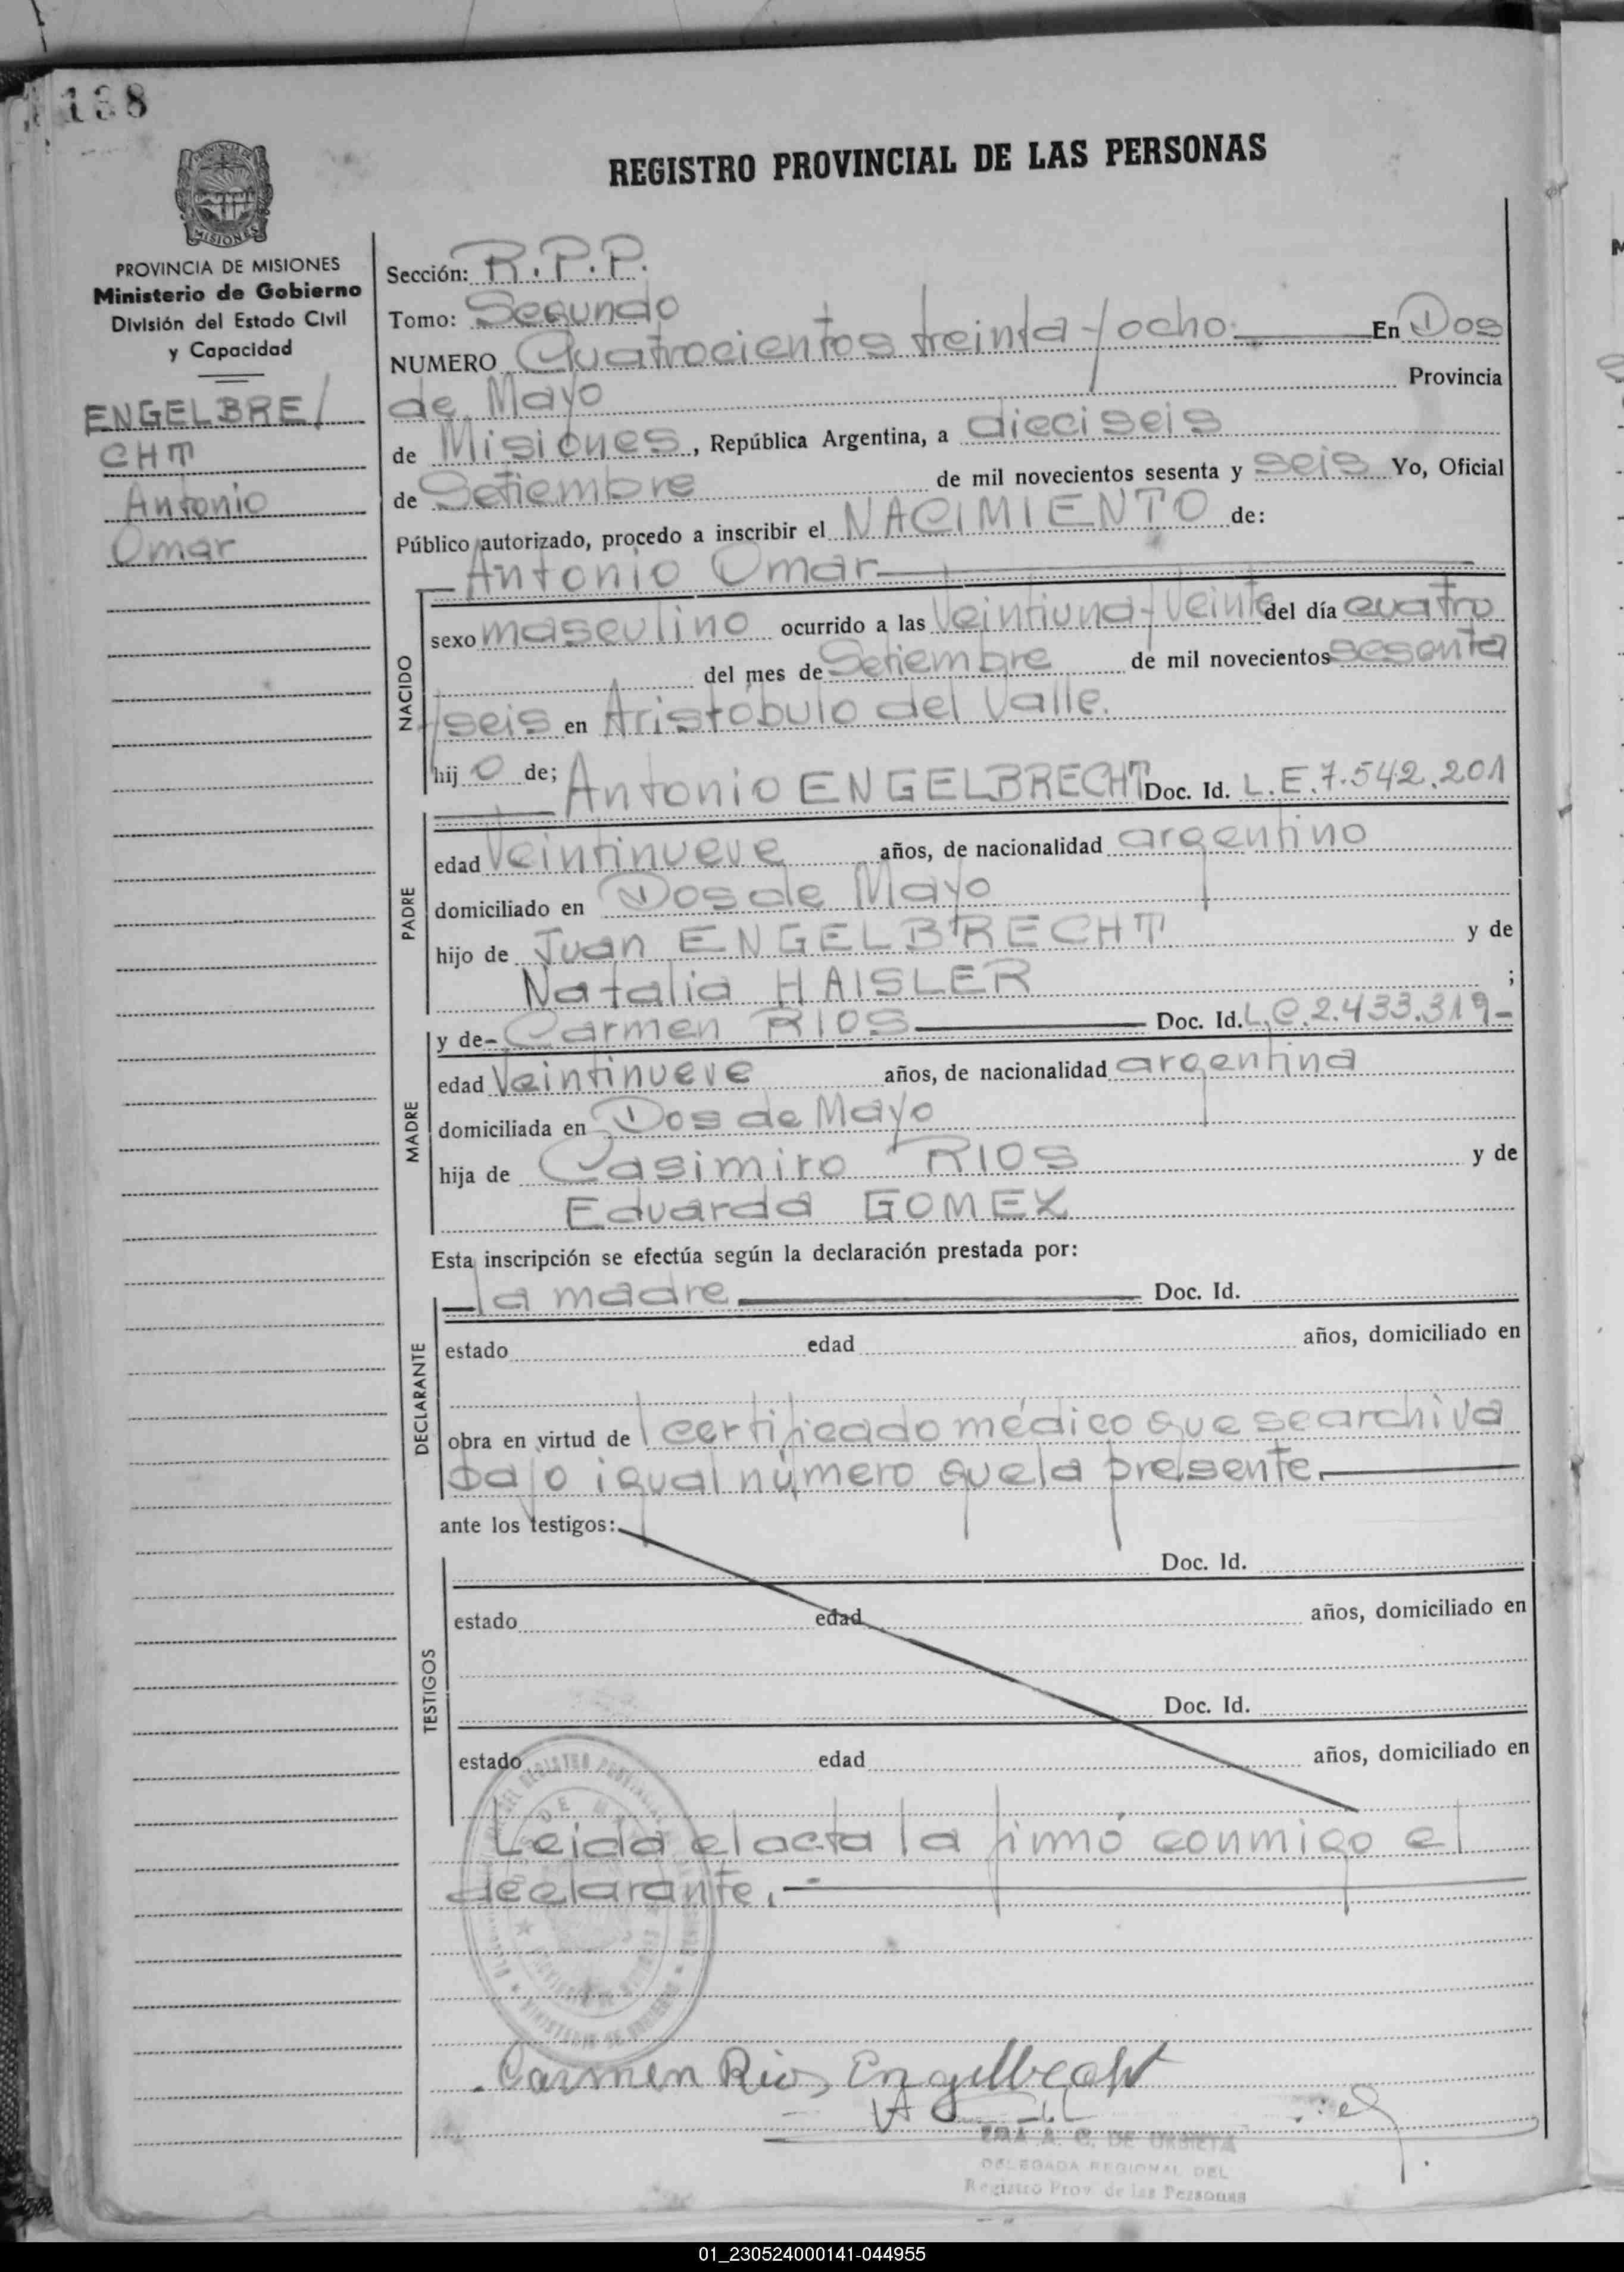 138
REGISTRO PROVINCIAL DE LAS PERSONAS
PROVINCIA DE
MISIONES
PROVINCIA DE MISIONES
Ministerio de Gobierno
División del Estado Civil
y Capacidad
ENGELBRE/
CHT
Antonio
Omar
Sección: R.P.P.
Tomo: Segundo
NUMERO Cuatrocientos treinta y ocho. En Dos
de Mayo Provincia
de Misiones, República Argentina, a dieciseis
de Setiembre de mil novecientos sesenta y seis Yo, Oficial
Público autorizado, procedo a inscribir el NACIMIENTO de:
Antonio Omar
NACIDO
sexo masculino ocurrido a las Veintiuna y Veinte del día cuatro
del mes de Setiembre de mil novecientos sesenta
y seis en Aristóbulo del Valle.
hij o de; Antonio ENGELBRECHT Doc. Id. L.E.7.542.201
PADRE
edad Veintinueve años, de nacionalidad argentino
domiciliado en Dos de Mayo
hijo de Juan ENGELBRECHT y de
Natalia HAISLER ;
MADRE
y de- Carmen RIOS Doc. Id. L.C.2.433.319-
edad Veintinueve años, de nacionalidad argentina
domiciliada en Dos de Mayo
hija de Casimiro RIOS y de
Eduarda GOMEZ
Esta inscripción se efectúa según la declaración prestada por:
DECLARANTE
la madre Doc. Id.
estado edad años, domiciliado en
obra en virtud de l certificado médico que se archiva
bajo igual número que la presente.
ante los testigos:
TESTIGOS
Doc. Id.
estado edad años, domiciliado en
Doc. Id.
estado edad años, domiciliado en
Leida el acta la firmó conmigo el
declarante.
Carmen Rios Engelbecht
A. C. DE URBIETA
DELEGADA REGIONAL DEL
Registro Prov. de las Personas
01_230524000141-044955